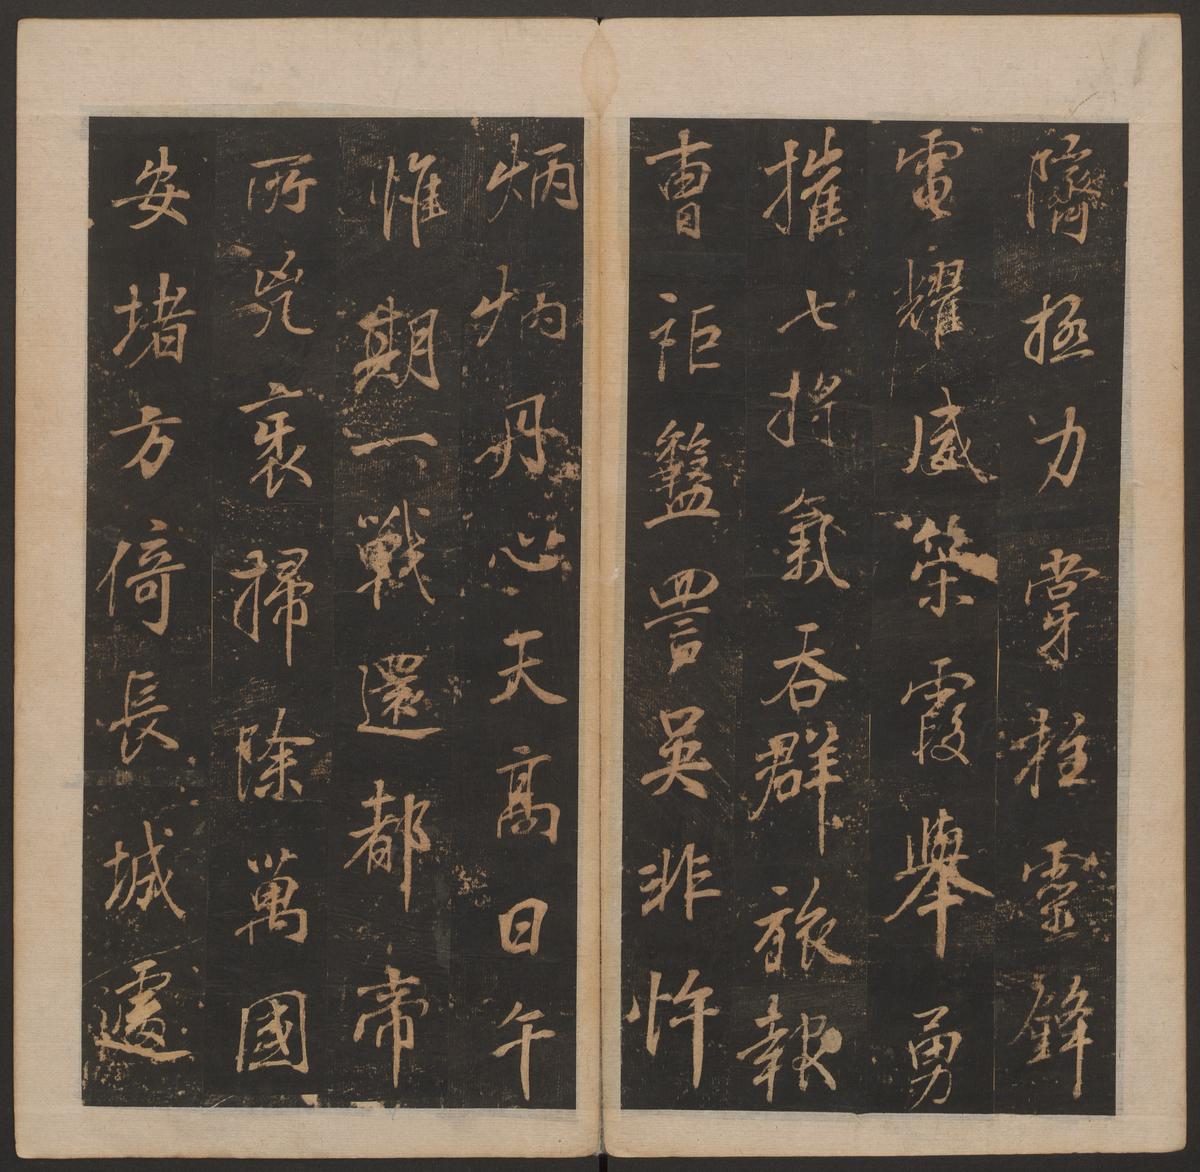 隮拯力掌靈鋒
電耀威策霞舉勇
摧七將氣吞群旅報
曹詈吳非忤
炳炳丹心天高日午
惟期一戰還都帝
所兇掃除萬國
安堵方倚長城遽